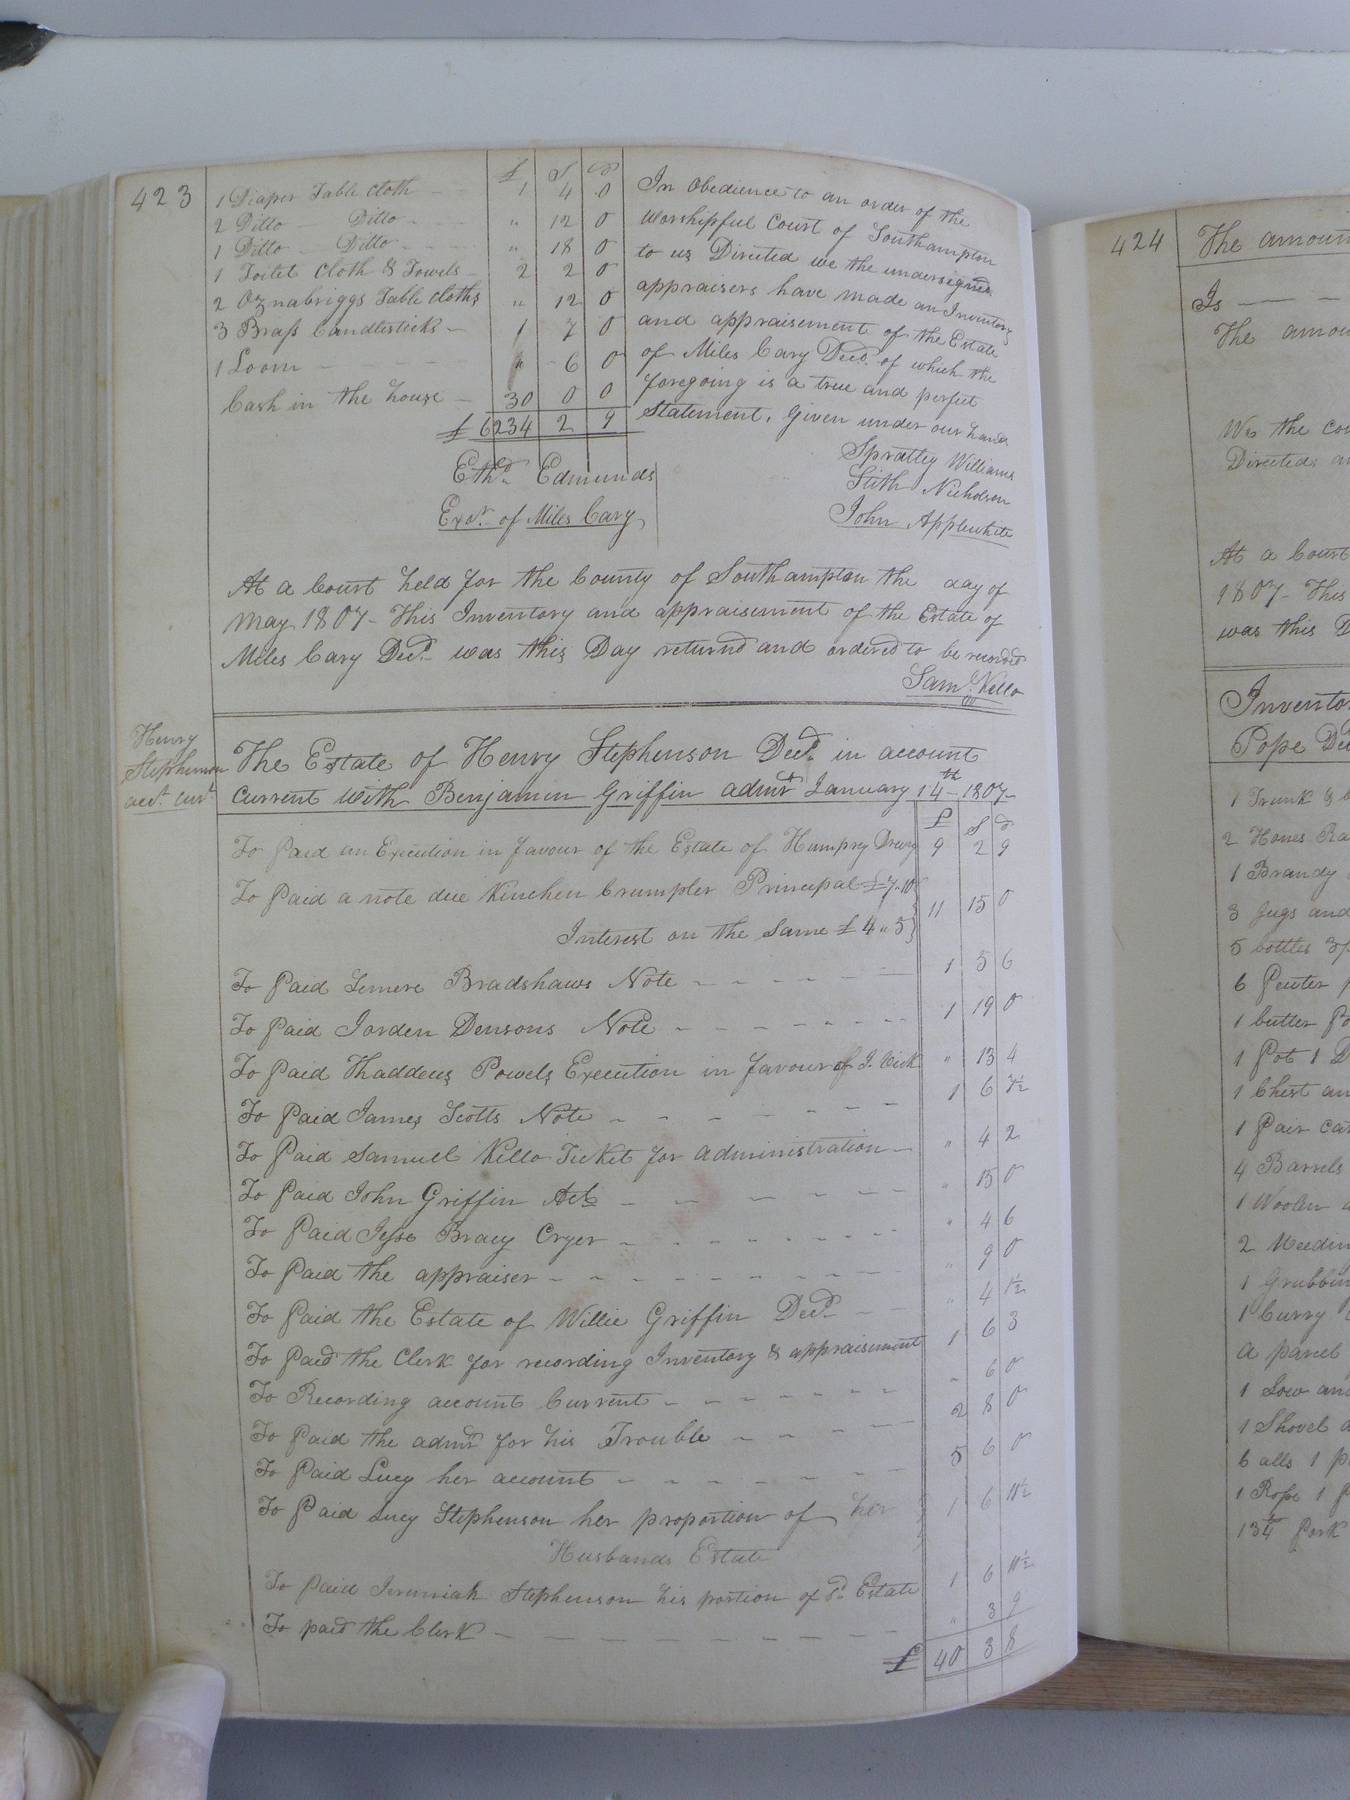 423
£ S D
1 Diaper Table cloth - - 1 4 0
2 Ditto - Ditto - - - " 12 0
1 Ditto - Ditto - - - " 18 0
1 Toilet cloth & Towels - 2 2 0
2 Oznabriggs Table cloths " 12 0
3 Brass Candlesticks - 1 7 0
1 Loom - - - - " 6 0
Cash in the house - 30 0 0
£ 6234 2 9
Ethd. Edmunds
Exor. of Miles Cary
In Obedience to an order of the
Worshipful Court of Southampton
to us Directed we the undersigned
appraisers have made an Inventory
and appraisement of the Estate
of Miles Cary Decd. of which the
foregoing is a true and perfect
Statement, Given under our hands
Spratley Williams
Stith Nicholson
John Applewhite
At a Court held for the County of Southampton the day of
May 1807 - This Inventory and appraisement of the Estate of
Miles Cary Decd. was this Day returnd and ordered to be recorded
Saml. Kello
Henry
Stephenson
acct. curt.
The Estate of Henry Stephenson Decd. in account
Current with Benjamin Griffin admr. January 14th 1807 -
£ S D
To Paid an Execution in favour of the Estate of Humpry Drewry 9 2 9
To Paid a note due Kinchen Crumpler Principal £7.10
Interest on the Same £4 " 5 11 15 0
To Paid Lemere Bradshaws Note - - - - - 1 5 6
To Paid Jorden Densons Note - - - - - - 1 19 0
To Paid Thaddeus Powels Execution in favour of J. Vick " 13 4
To Paid James Scotts Note - - - - - - 1 6 7½
To Paid Samuel Kello Ticket for administration - " 4 2
To Paid John Griffin Act. - - - - - - " 15 0
To Paid Jesse Bracy Cryer - - - - - - " 4 6
To Paid the appraiser - - - - - - - " 9 0
To Paid the Estate of Willie Griffin Decd. - - " 4 1½
To Paid the Clerk for recording Inventory & appraisement 1 6 3
To Recording account Current - - - - - - " 6 0
To Paid the admr. for his Trouble - - - - 2 8 0
To Paid Lucy her account - - - - - - 5 6 0
To Paid Lucy Stephenson her proportion of her 1 6 11½
Husbands Estate
To Paid Jeremiah Stephenson his portion of sd. Estate 1 6 11½
To paid the Clerk - - - - - - - - " 3 9
£ 40 3 8
424
The amoun
Is - - -
The amou
We the cou
Directed a
At a Court
1807 - This
was this D
Inventor
Pope Dec
1 Trunk &
2 Hones Ra
1 Brandy
3 Jugs and
5 bottles 3 p
6 Peuter p
1 butter Po
1 Pot 1 D
1 Chest an
1 Pair car
4 Barrels
1 Woolen
2 Weedin
1 Grubbin
1 Curry C
a parcel
1 Sow an
1 Shovel a
6 alls 1 p
1 Rope 1 p
134 Pork